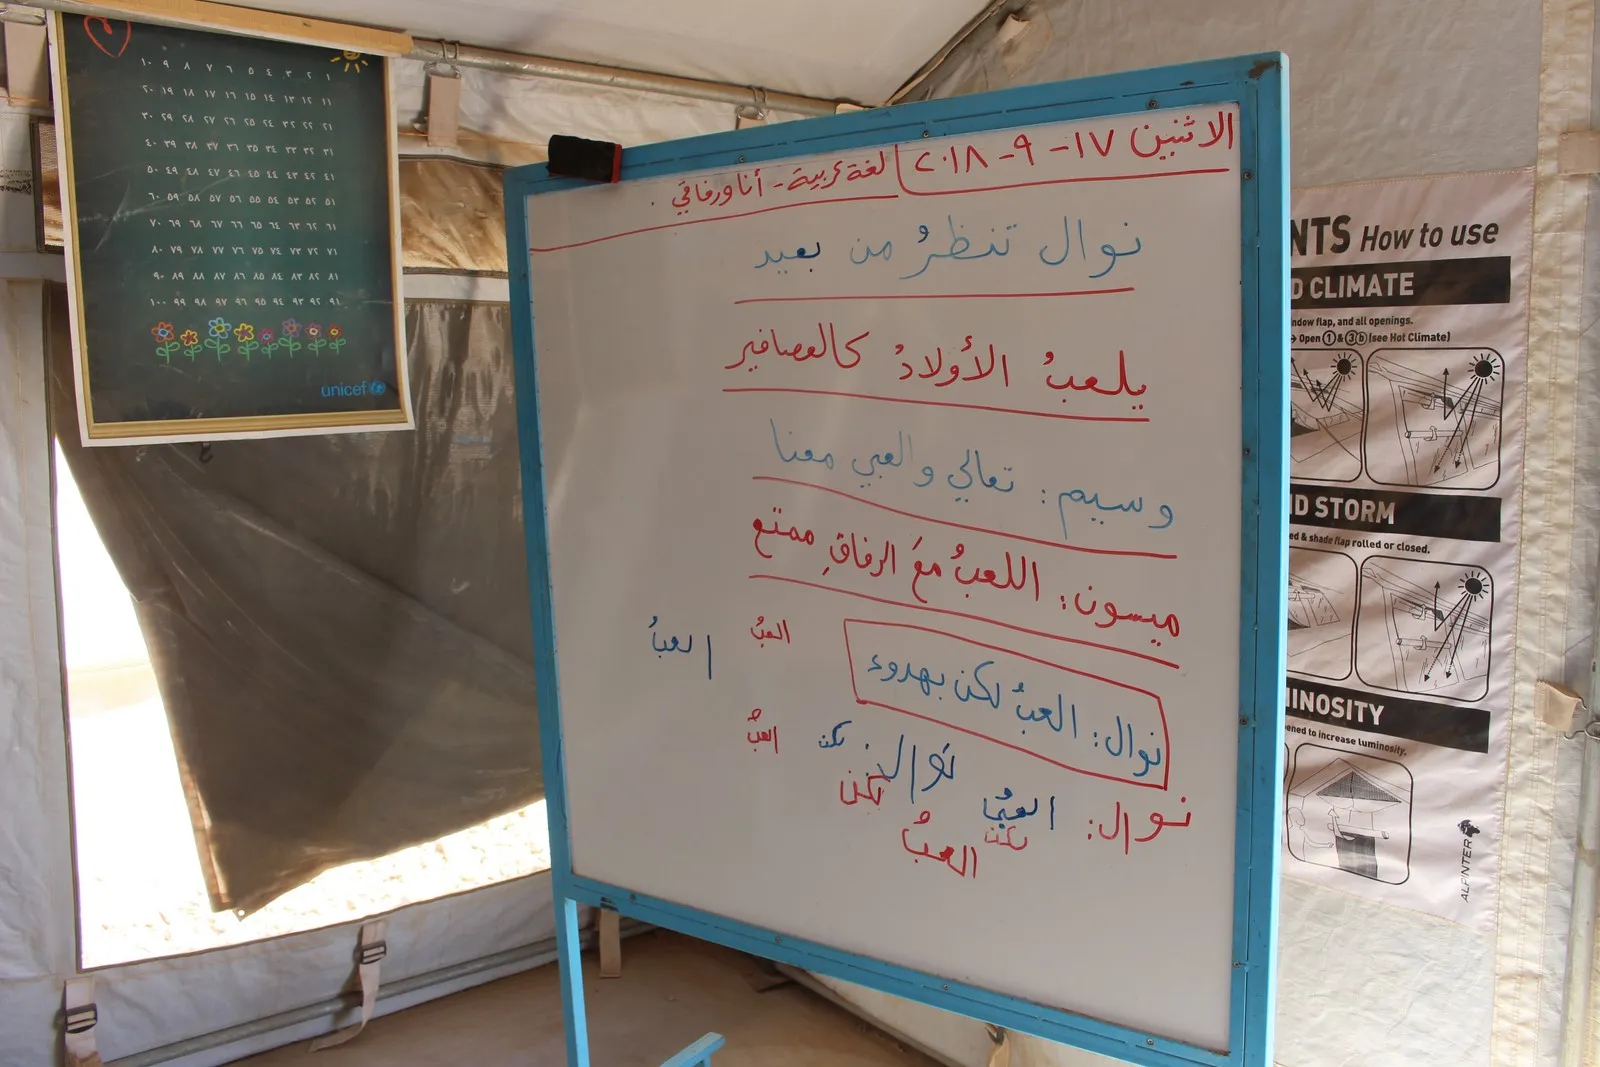 ١ ٢ ٣ ٤ ٥ ٦ ٧ ٨ ٩ ١٠
١١ ١٢ ١٣ ١٤ ١٥ ١٦ ١٧ ١٨ ١٩ ٢٠
٢١ ٢٢ ٢٣ ٢٤ ٢٥ ٢٦ ٢٧ ٢٨ ٢٩ ٣٠
٣١ ٣٢ ٣٣ ٣٤ ٣٥ ٣٦ ٣٧ ٣٨ ٣٩ ٤٠
٤١ ٤٢ ٤٣ ٤٤ ٤٥ ٤٦ ٤٧ ٤٨ ٤٩ ٥٠
٥١ ٥٢ ٥٣ ٥٤ ٥٥ ٥٦ ٥٧ ٥٨ ٥٩ ٦٠
٦١ ٦٢ ٦٣ ٦٤ ٦٥ ٦٦ ٦٧ ٦٨ ٦٩ ٧٠
٧١ ٧٢ ٧٣ ٧٤ ٧٥ ٧٦ ٧٧ ٧٨ ٧٩ ٨٠
٨١ ٨٢ ٨٣ ٨٤ ٨٥ ٨٦ ٨٧ ٨٨ ٨٩ ٩٠
٩١ ٩٢ ٩٣ ٩٤ ٩٥ ٩٦ ٩٧ ٩٨ ٩٩ ١٠٠
unicef
الاثنين ١٧ - ٩ - ٢٠١٨
لغة عربية - أنا ورفاقي .
نوال تنظرُ من بعيد
يلعبُ الأولادُ كالعصافير
وسيم: تعالي والعبي معنا
ميسون: اللعبُ معَ الرفاقِ ممتع
نوال: العبُ لكن بهدوء
العبُ العبُ
نوال لكن العبُ
نوال: العبُ لكن
لكن العبُ
NTS How to use
D CLIMATE
ndow flap, and all openings.
→ Open 1 & 3b (see Hot Climate)
ND STORM
ed & shade flap rolled or closed.
MINOSITY
ened to increase luminosity.
ALPINTER